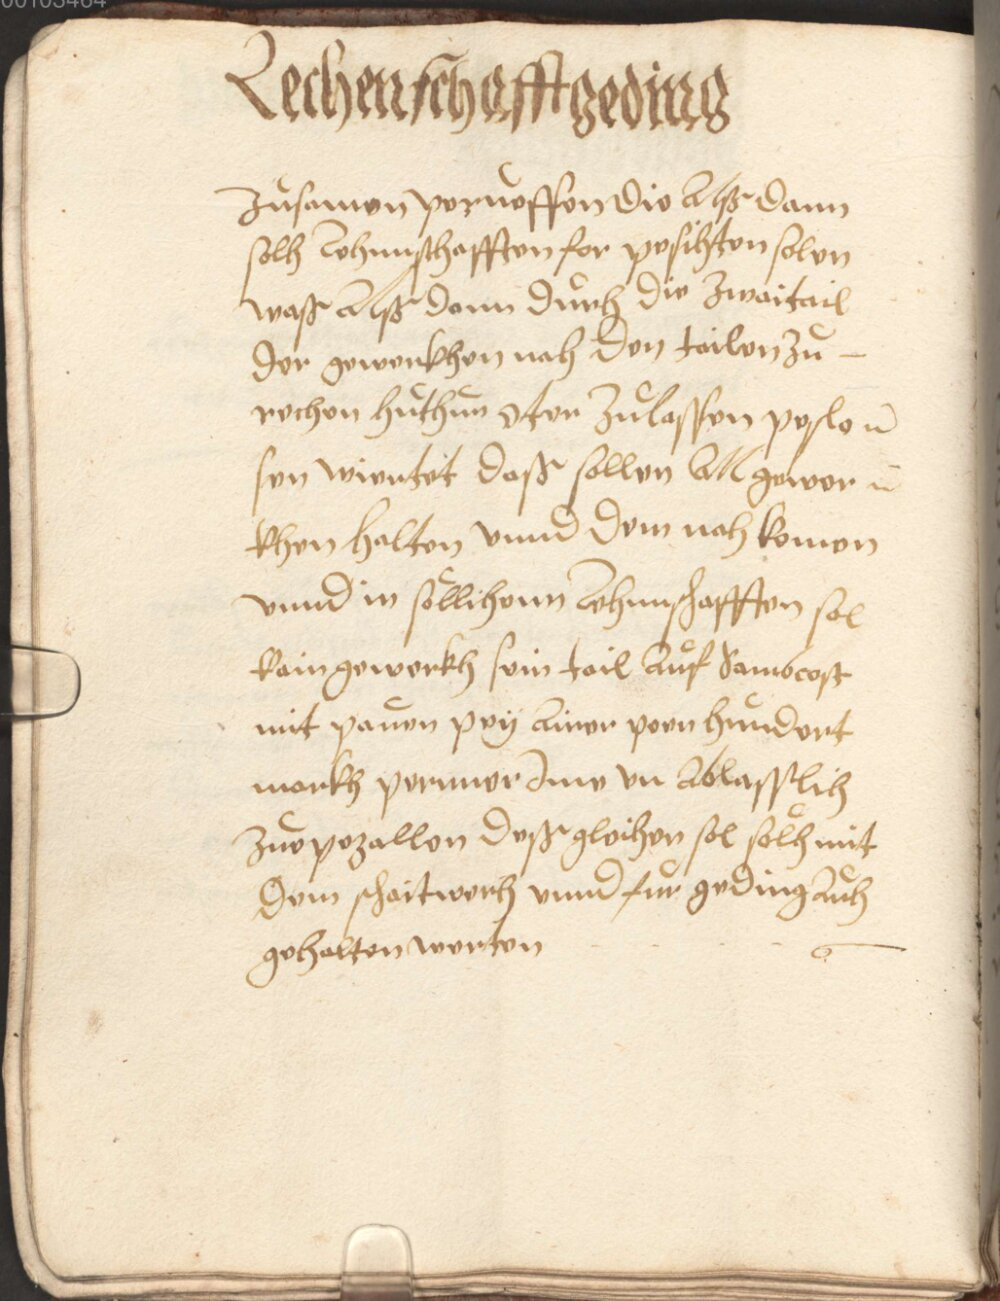 00103464
Lechenschafftgeding
zusamen peruoffen die Alß dann
solh Lehennschafften for pesihten solen
waß Alß dann durch die zwaitail
der gewerkhen nah den tailen zu
rechen huthun oter zulassen peslo
sen wirtet daß sollen All gewer
khen halten vnnd dem nah komen
vnnd in söllihenn Lehennschafften sol
kain gewerkh sein tail Auf Samocost
mit pauen pey Ainer peen hundert
markh perner Ime un Ablasslih
zue pezallen deß gleihen sol solh mit
dem schaitwerh vnnd fur geding Auh
gehalten werten